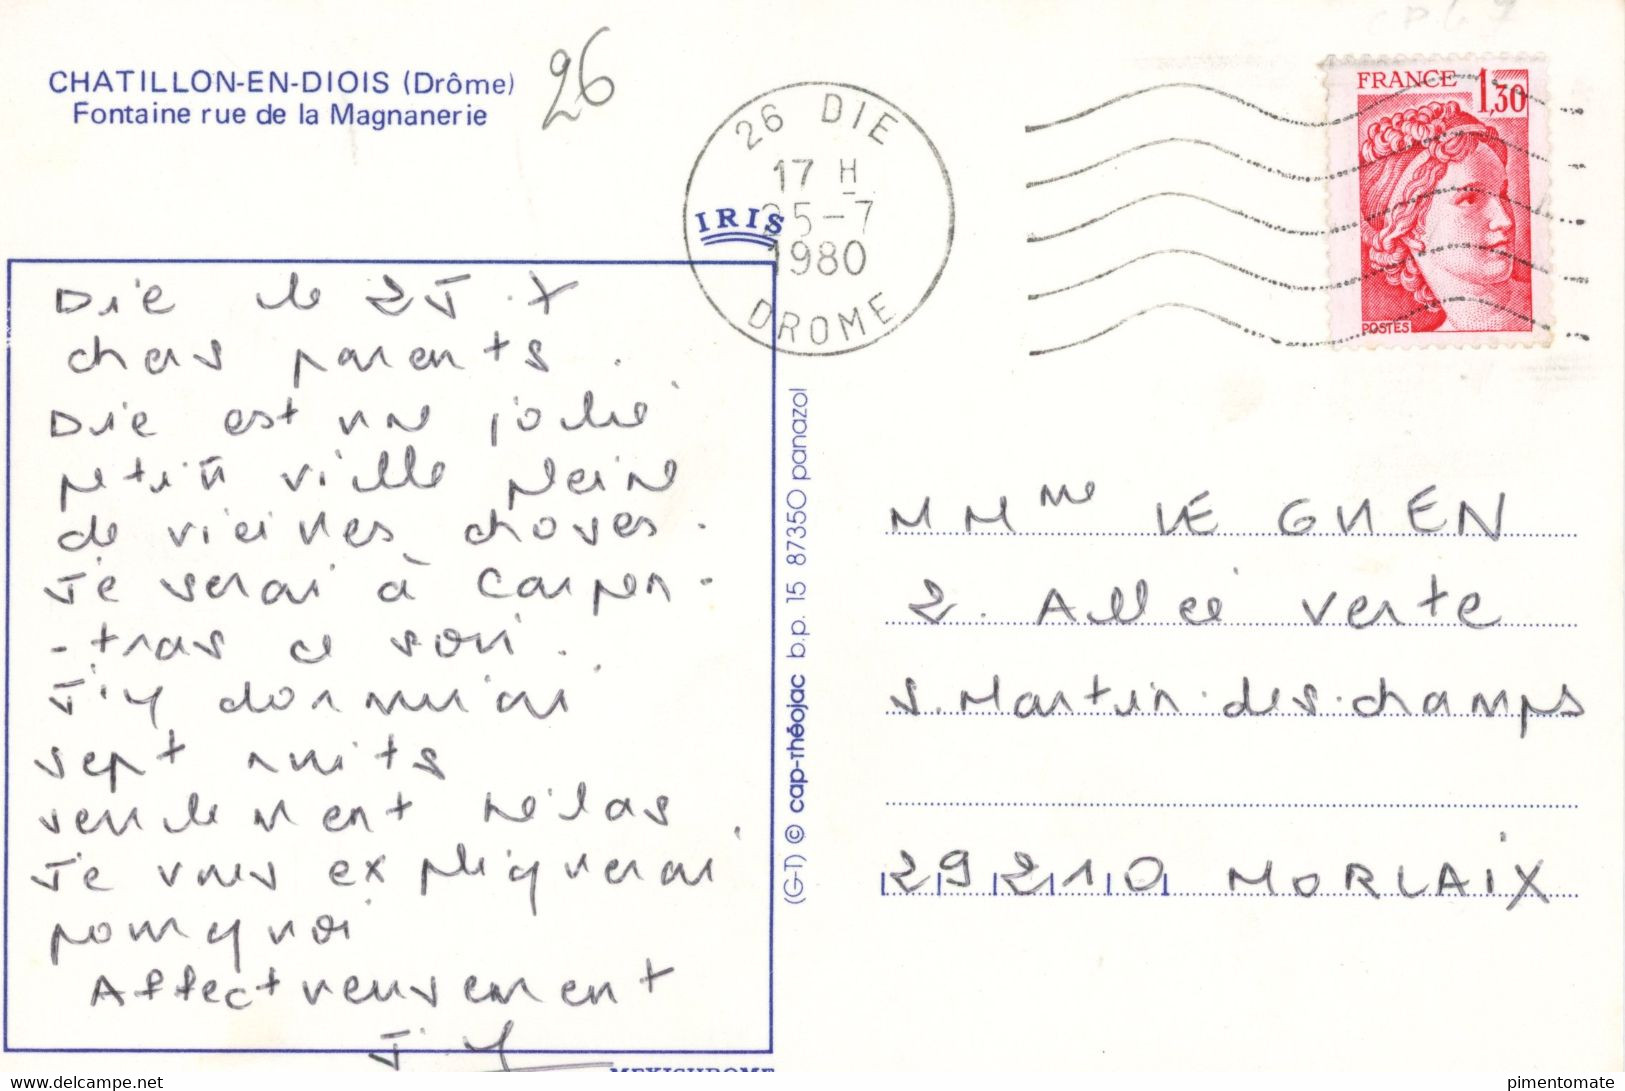 CHATILLON-EN-DIOIS (Drôme)
Fontaine rue de la Magnanerie
26
26 DIE
17 H
25-7
1980
DROME
IRIS
FRANCE 1,30
POSTES
Die le 25.7
chers parents.
Die est une jolie
petite ville pleine
de vieilles choses.
Je serai à Carpen-
-tras ce soir.
J'y dormirai
sept nuits
seulement hélas.
Je vous expliquerai
pourquoi
Affectueusement
J.Y
(G-T) © cap-théojac b.p. 15 87350 panazol
M Mme LE GUEN
2. Allée verte
S. Martin.des.champs
29210 MORLAIX
MEXICHROME
www.delcampe.net
pimentomate